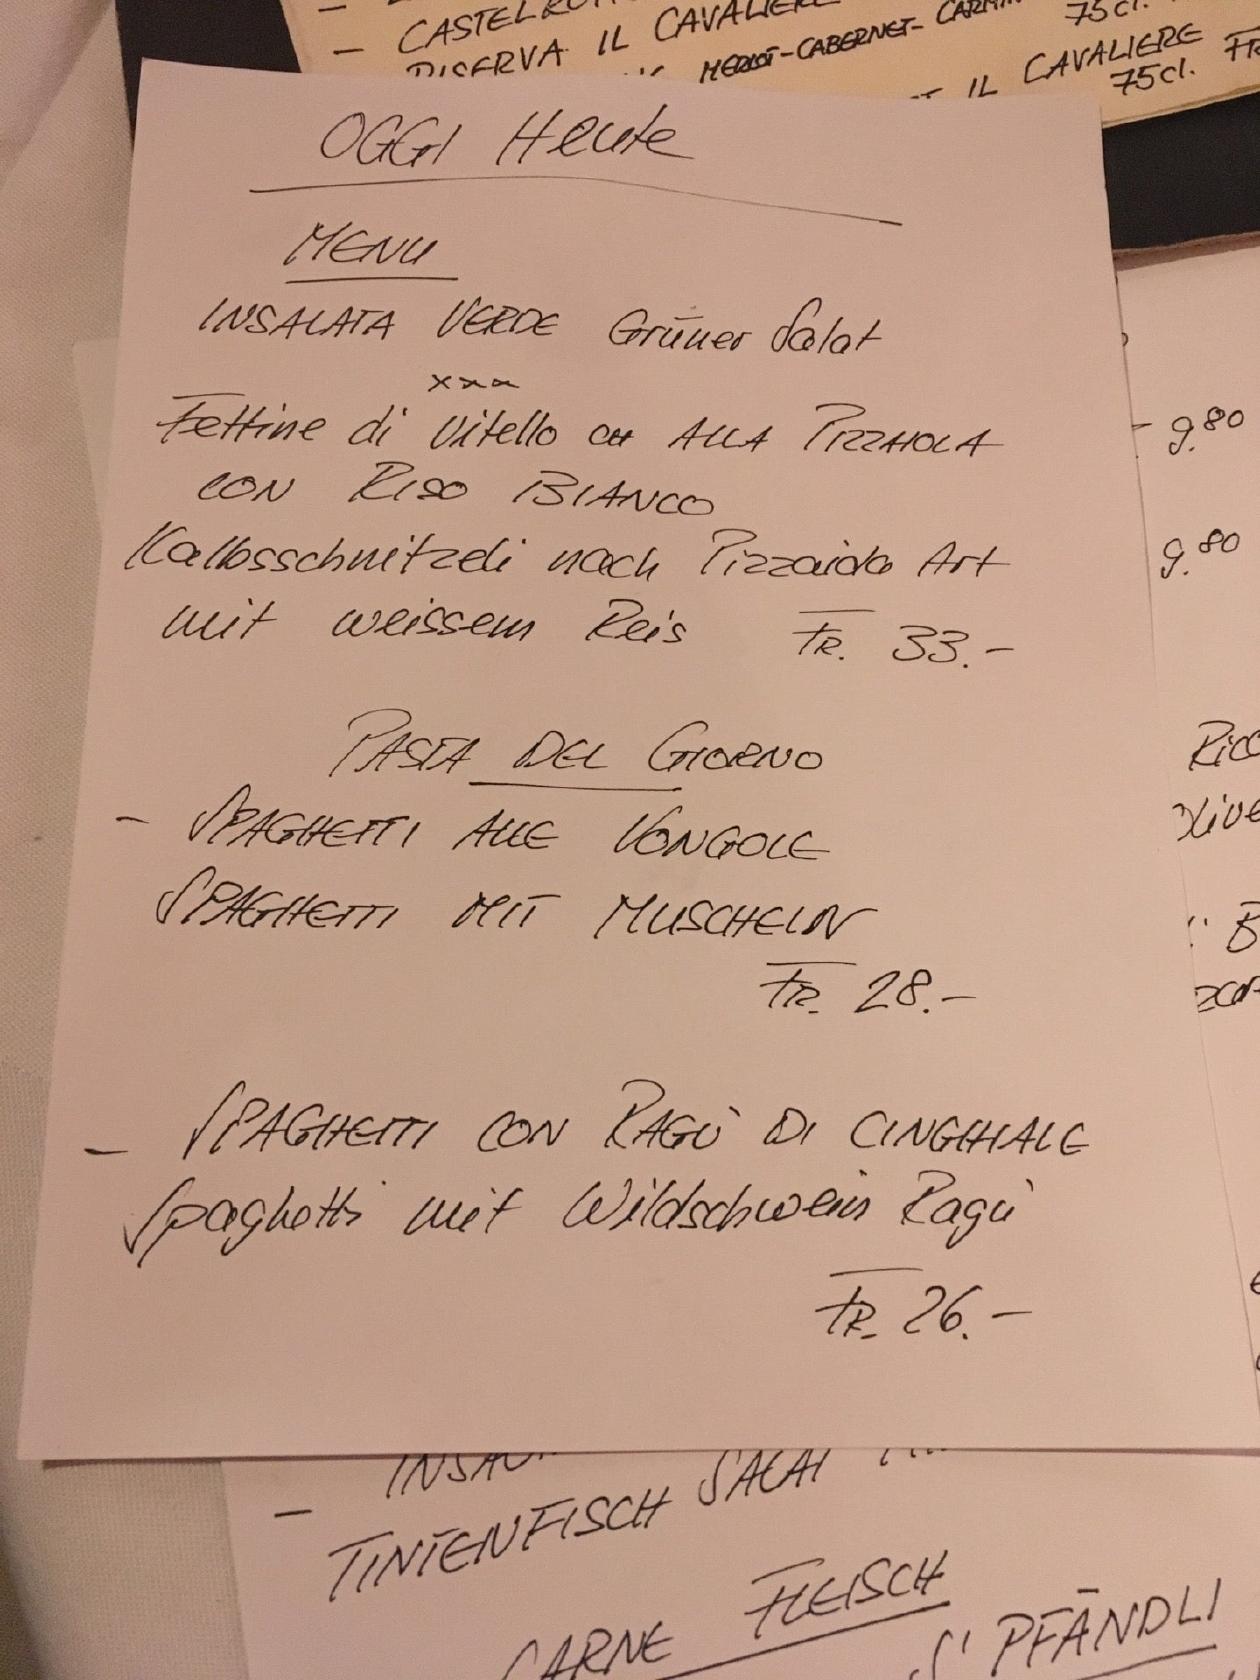 CASTELRO
75cl.
RISERVA IL CAVALIERE
MERLOT-CABERNET-
IL CAVALIERE
75cl. FR
OGGI Heute
MENU
INSALATA VERDE Grüner Salat
xxx
Fettine di Vitello CH ALLA PIZZAIOLA
CON RISO BIANCO
Kalbsschnitzeli nach Pizzaiola Art
mit weissem Reis FR. 33.-
PASTA DEL GIORNO
- SPAGHETTI ALLE VONGOLE
SPAGHETTI MIT MUSCHELN
FR. 28.-
- SPAGHETTI CON RAGÙ DI CINGHIALE
Spaghetti mit Wildschwein Ragù
FR. 26.-
9.80
9.80
- TINTENFISCH SALAT
CARNE FLEISCH
S' PFÄNDLI